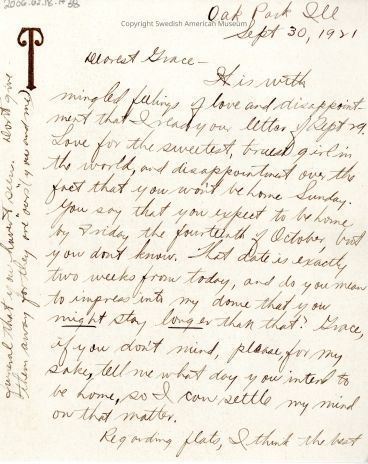 2006.02.58.
Copyright Swedish American Museum
Oak Park Ill
Sept 30, 1921
Dearest Grace-
It is with
mingled feelings of love and disappoint
ment that I read your letter of Sept 29.
Love for the sweetest, truest girl in
the world, and disappointment over the
fact that you won't be home Sunday.
You say that you expect to be home
by Friday the fourteenth of October, but
you don't know. That date is exactly
two weeks from today, and do you mean
to impress into my dome that you
might stay longer than that? Grace,
if you don't mind, please, for my
sake, tell me what day you intend to
be home, so I can settle my mind
on that matter.
Regarding flats, I think the best
T
several that you haven't seen. Don't give
them away for they are ours (you and me)